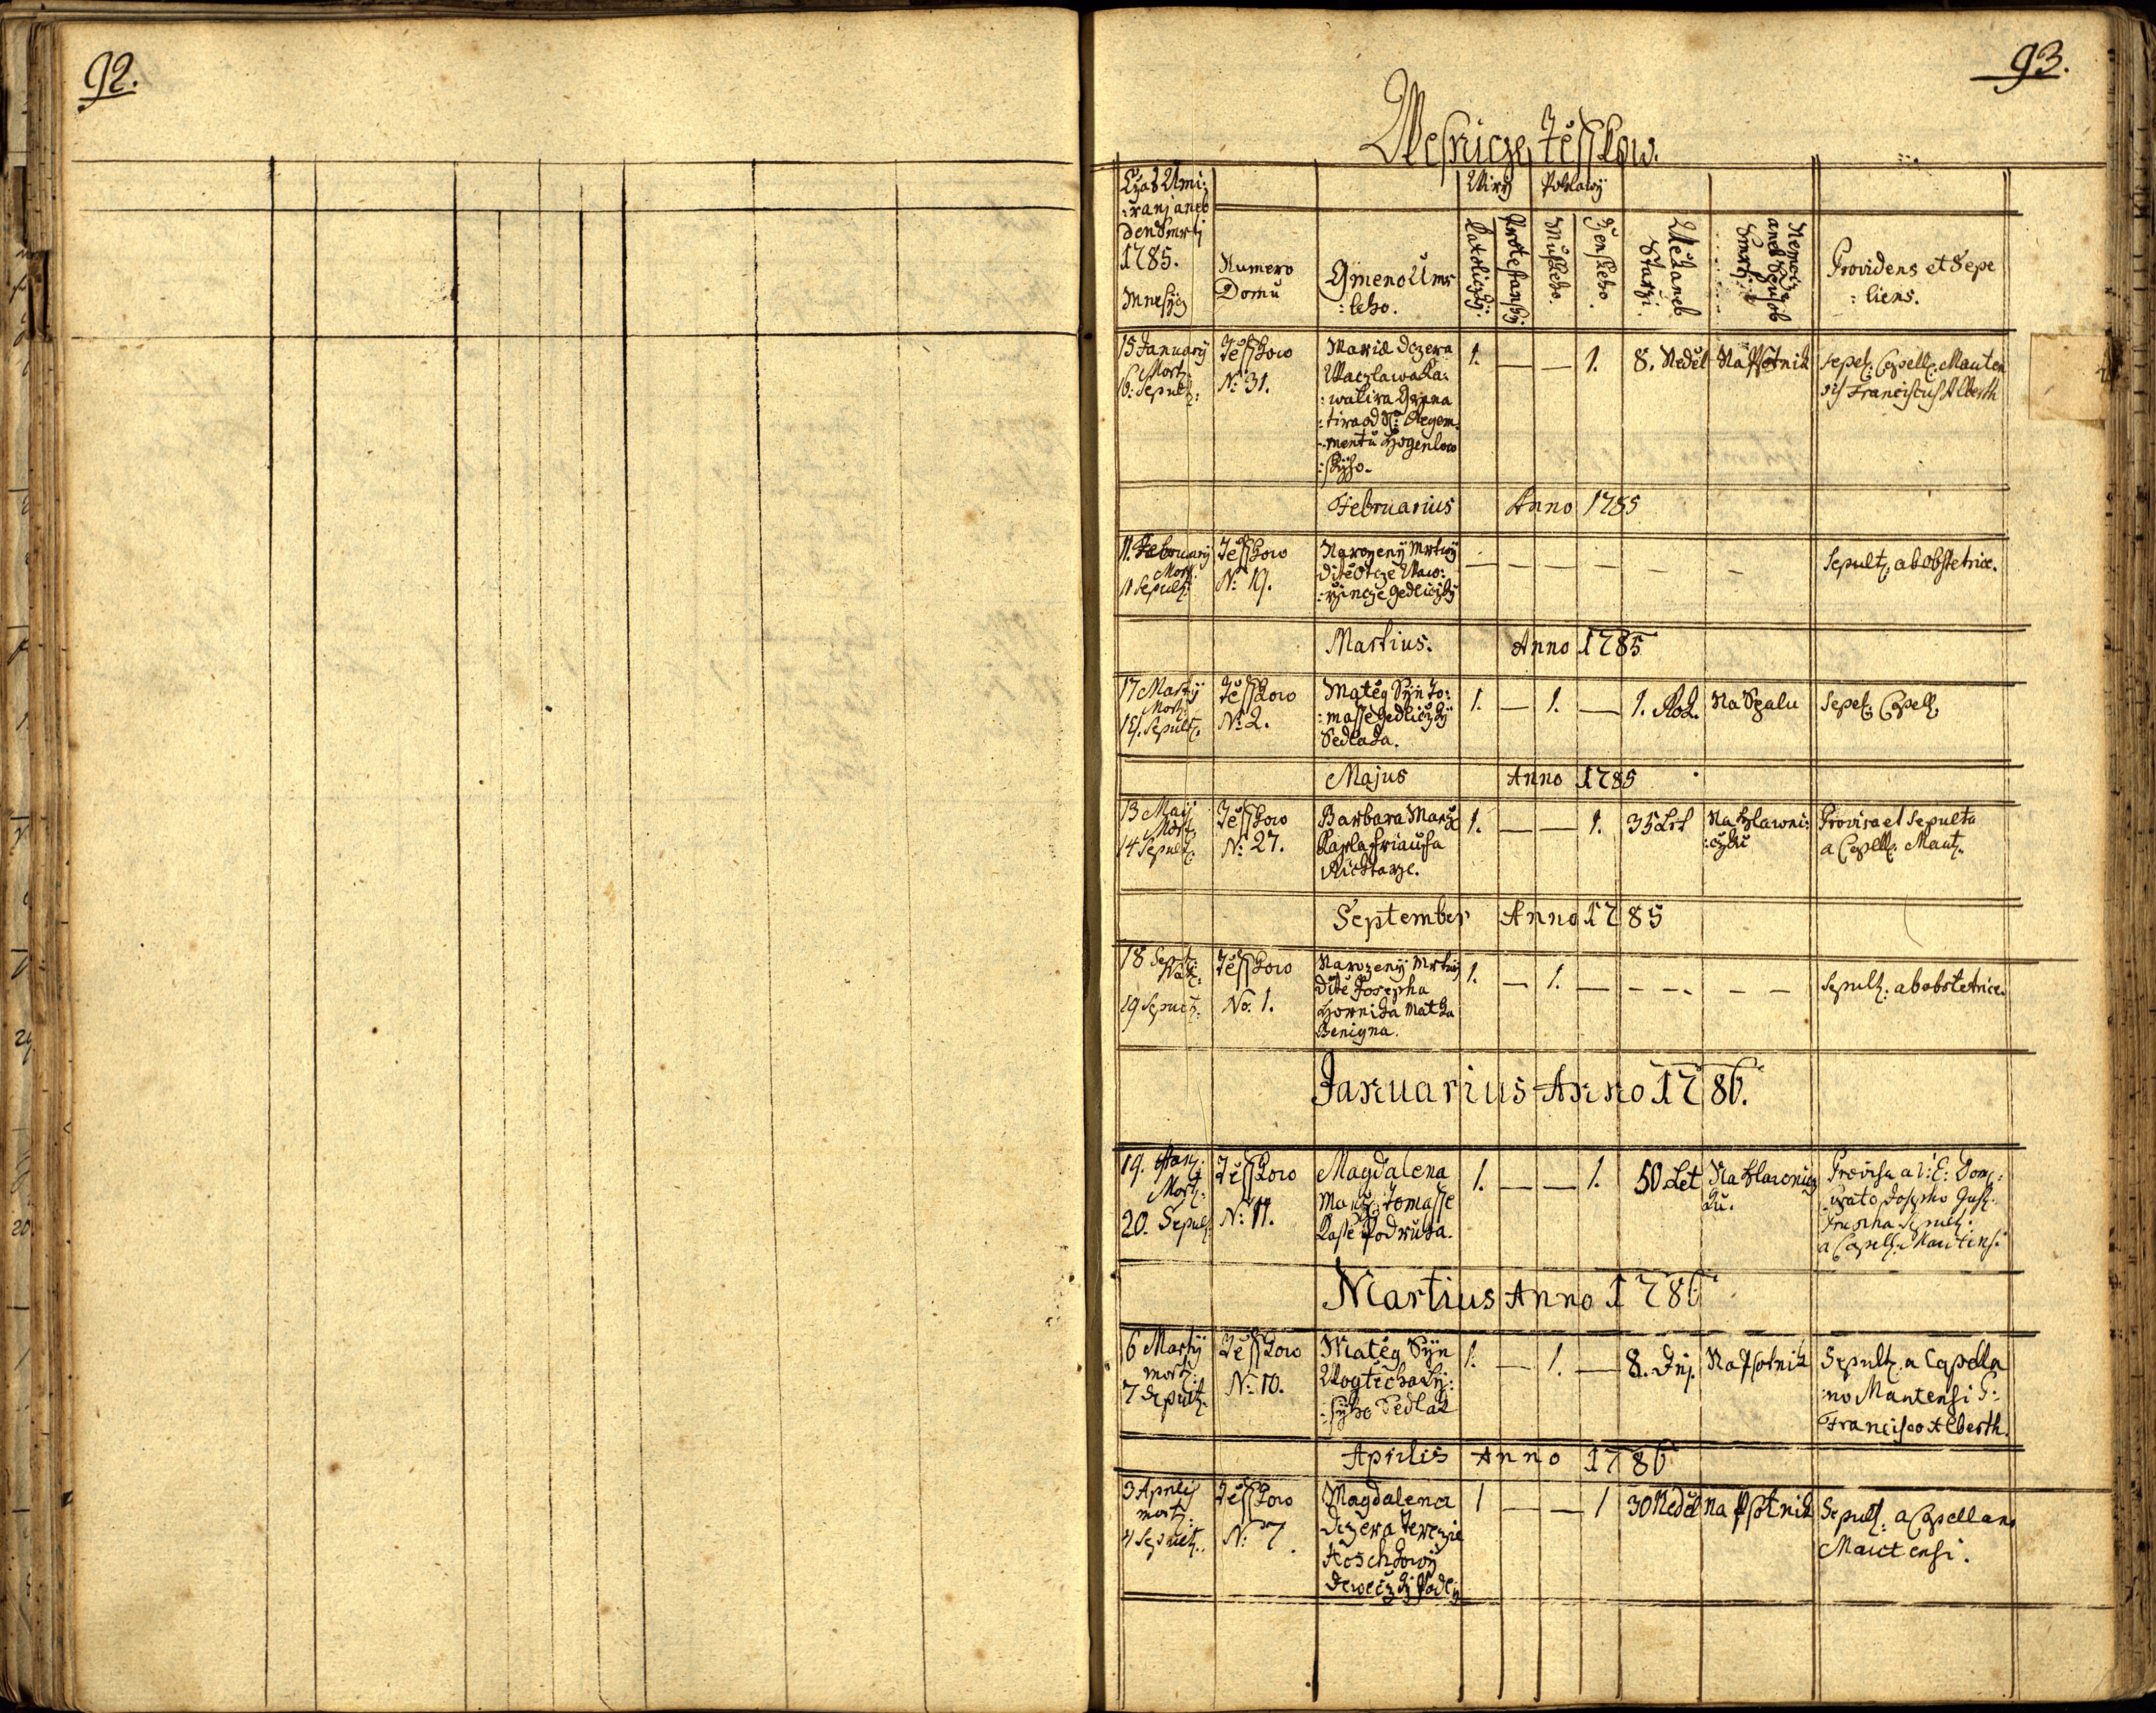 92.
93.
Wesnicze Těsskow.
Czas Umi:
:ranj aneb
den Smrti
1785.
Mnesycz
Numero
Domu
Gmeno Um:
:leho.
Wiry
Pohlawy
Katoliczky:
Protestansky:
Mužskeho.
Ženskeho.
Wiek aneb
Starzi.
Nemocz
aneb Spusob
Smrti
Providens et Sepe
:liens.
15 January
Mort:
16: Sepult:
Těsskow
N: 31.
Maria dczera
Waczlawa Ka:
:walira
:tira od Regem:
:mentu Hogenlow
:skyho.
1. — — 1.
8. Neděl
Na Psotnik
Sepel: Capell: Mauten
sis Franciscus Alberth
Februarius Anno 1785
11. February
Mort:
11 Sepult:
Těsskow
N: 19.
Narozeny Mrtwy
ditě Otcze Waw:
:rzincze Gedliczky
— — — — — —
Sepult: ab obstetrice.
Martius. Anno 1785
17 Marty
Mort:
19. Sepult:
Těsskow
N: 2.
Matěg Syn To:
:masse Gedliczky
Sedlaka.
1. — 1. —
1. Rok.
Na Spalu
Sepel: Capell:
Majus Anno 1785
13 Maij
Mort:
14 Sepult:
Těsskow
N: 27.
Barbara Manž
Karla Friaufa
Richtarze.
1. — — 1.
35 Let
Na Hlawni:
:czku
Provisa et Sepulta
a Capell: Maut:
September Anno 1785
18 Sept:
Nat:
19 Sepult:
Těsskow
No. 1.
Narozeny Mrtwy
ditě Josepha
Hornika Matka
Benigna.
1. — 1. — — — —
Sepult: ab obstetrice.
Januarius Anno 1786.
19. Jan:
Mort:
20. Sepult:
Těsskow
N: 11.
Magdalena
Manž: Tomasse
Kasse Podruha.
1. — — 1.
50 Let
Na Hlawnicz
ku.
Provisa a
Josepho
Sepult:
a Capell: Mautensi
Martius Anno 1786
6 Marty
mort:
7 Sepult:
Těsskow
N: 10.
Matěg Syn
Wogtěcha Ly:
:syho Sedlak
1. — 1. —
8. Dnj.
Na Psotnik
Sepult: a Capella
:no Mautensi P:
Francisco Alberth.
Aprilis Anno 1786
3 Aprilis
mort:
4 Sepult:
Těsskow
N: 7.
Magdalena
Dczera Terezie
Hoschkowy
děweczky
1 — — 1
30 Neděl
na Psotnik
Sepult: a Capellano
Mautensi.